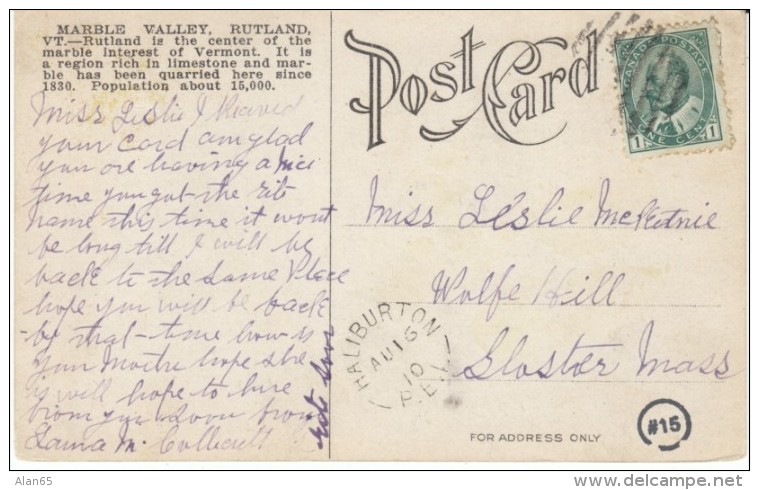 MARBLE VALLEY, RUTLAND,
VT.—Rutland is the center of the
marble interest of Vermont. It is
a region rich in limestone and mar-
ble has been quarried here since
1830. Population about 15,000.
Miss Leslie I
your card am glad
you are having a nice
time you got the
name this time it wont
be long till I will be
back to the same Place
hope you will be back
by that time how is
your hope she
is will hope to
from you soon from
Lama M.
Post Card
CANADA POSTAGE
ONE CENT
1 1
Miss Leslie
Wolfe Hill
Gloster Mass
HALIBURTON
AU 16
10
P.E.I.
FOR ADDRESS ONLY
#15
© Alan65
http://www.delcampe.net